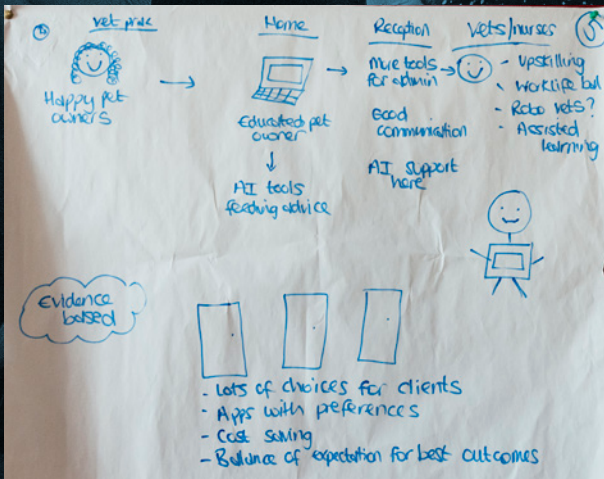 vet prac
Happy pet
owners
Home
Educated pet
owner
AI tools
feeding advice
Reception
More tools
for admin
Good
communication
AI support
here
Vets/nurses
- Upskilling
- Worklife bal
- Robo vets?
- Assisted
learning
5
Evidence
based
- Lots of choices for clients
- Apps with preferences
- Cost saving
- Balance of expectation for best outcomes